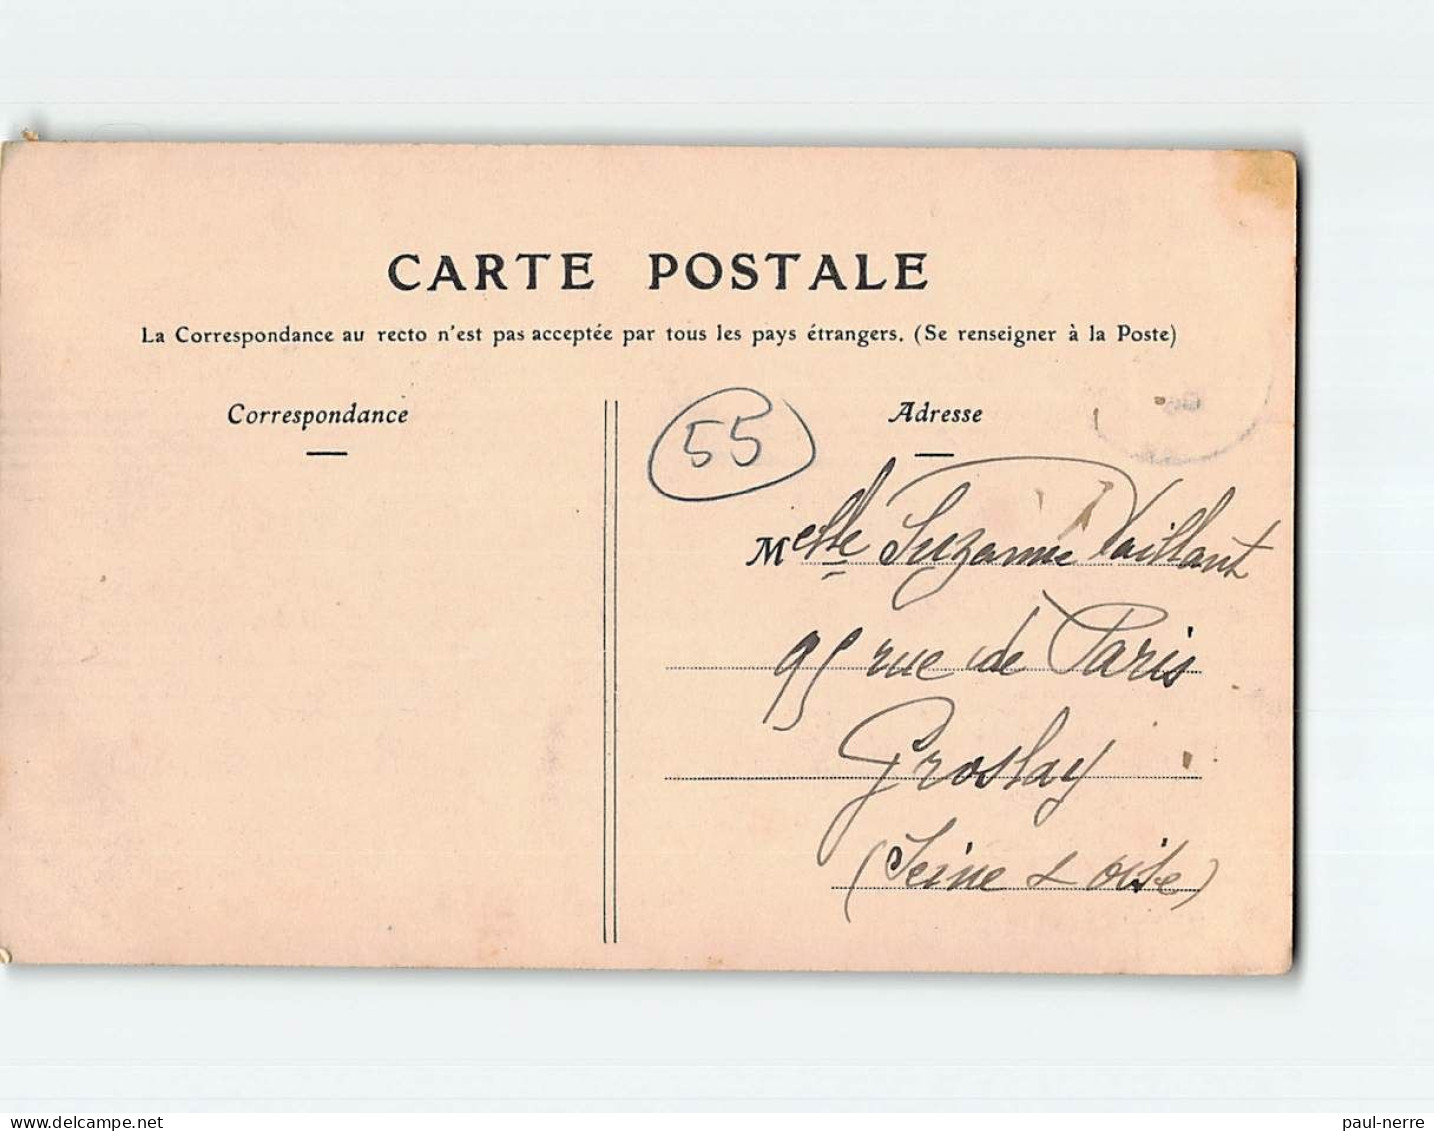 CARTE POSTALE
La Correspondance au recto n'est pas acceptée par tous les pays étrangers. (Se renseigner à la Poste)
Correspondance
55
Adresse
Melle Suzanne Vaillant
95 rue de Paris
Groslay
(Seine & Oise)
paul-nerre